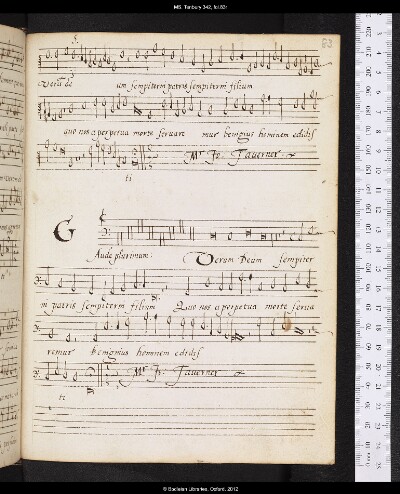 MS. Tenbury 342, fol.83r
83
Verū de um sempiterni patris sempiterni filium
quo nos a perpetua morte servare mur benigius hominem edidis
Mr Jo: Taverner
ti
Gaude plurimum: Verum Deum sempiter
ni patris sempiterni filium Quo nos a perpetua morte serva
remur benignius hominem edidis
Mr Jo: Taverner
ti
© Bodleian Libraries, Oxford, 2012